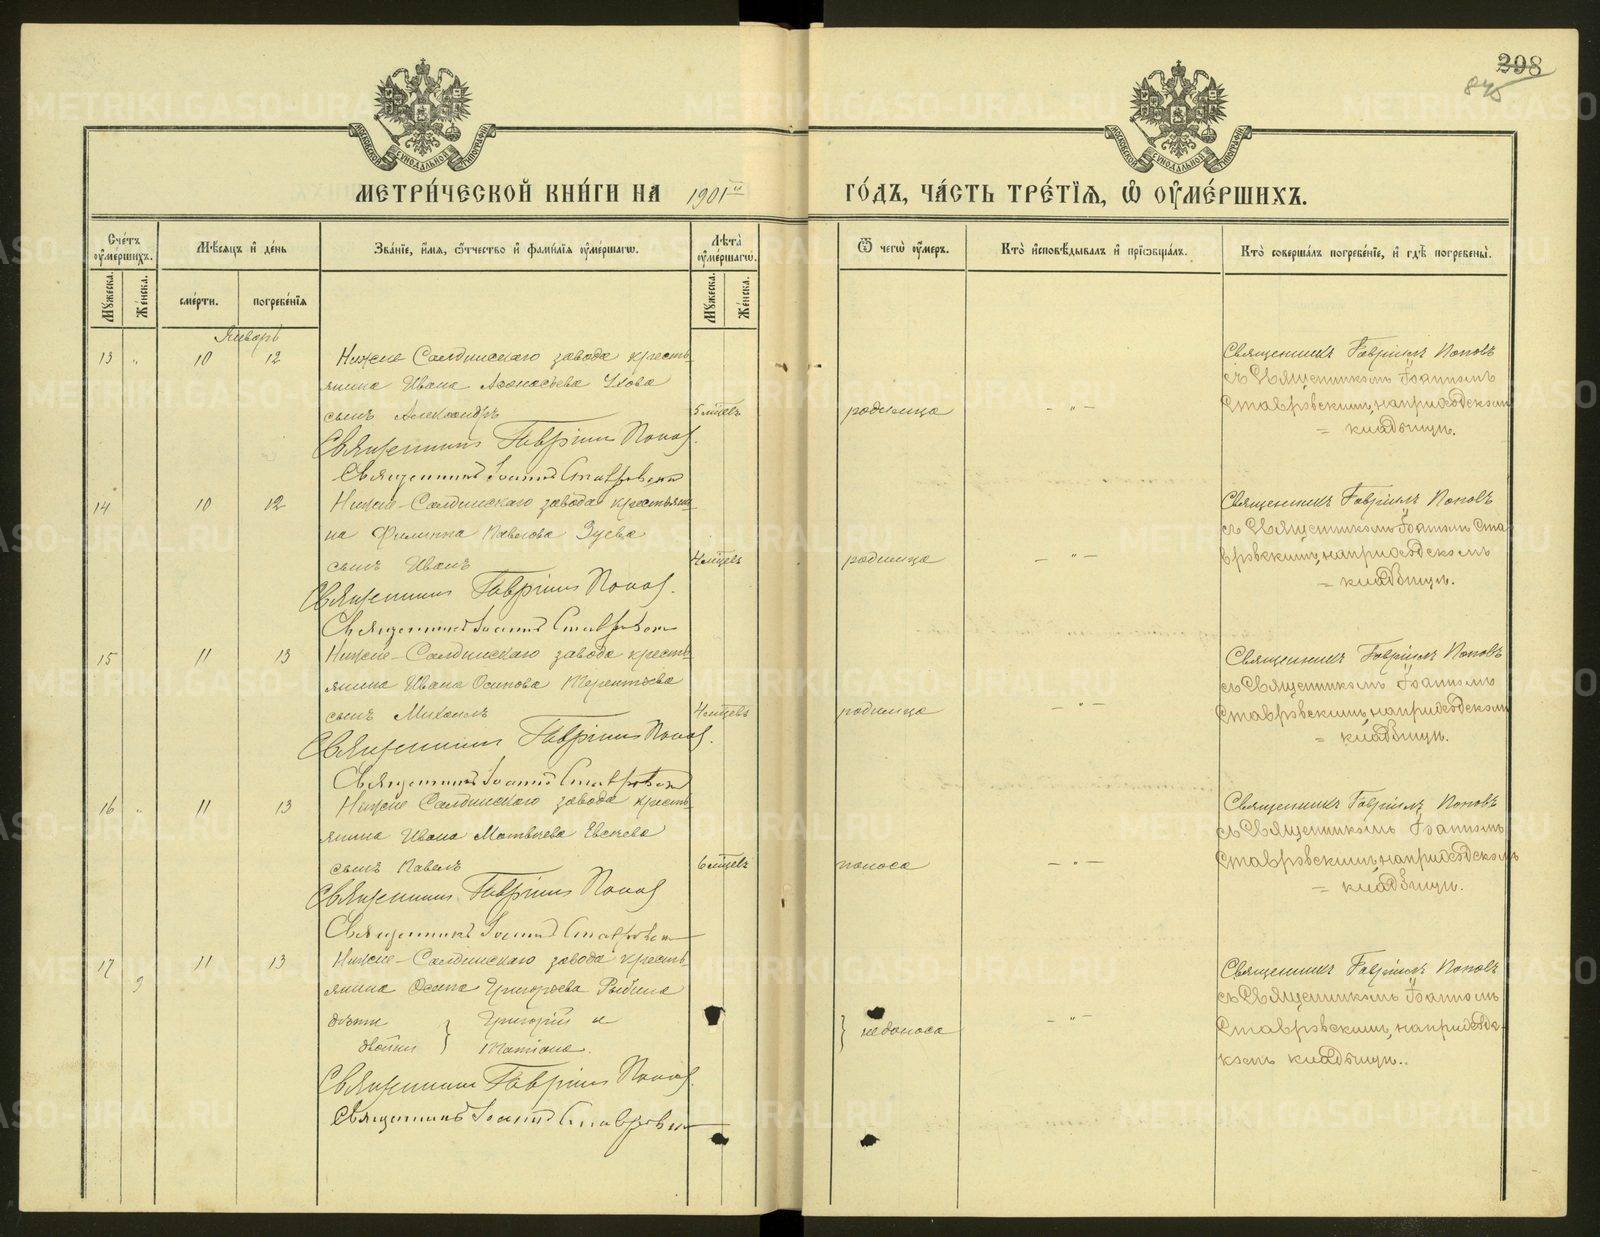 298
845
МОСКОВСКОЙ СУНОДАЛЬНОЙ ТИПОГРАФІИ
МОСКОВСКОЙ СУНОДАЛЬНОЙ ТИПОГРАФІИ
МЕТРИ́ЧЕСКОЙ КНИ́ГИ НА 1901 ГО́ДЪ, ЧА́СТЬ ТРЕ́ТІЯ, Ѡ ОУМЕ́РШИХЪ.
Сче́тъ оуме́ршихъ.
Мꙋжеска.
Же́нска.
Мѣ́сяцъ и де́нь
сме́рти.
погребе́нія
Зва́ніе, и́мя, ѻ́тчество и фами́лія оуме́ршагѡ.
Лѣта̀ оуме́ршагѡ.
Мꙋжеска.
Же́нска.
Ѿ чегѡ̀ оу́меръ.
Кто̀ исповѣ́дывалъ и пріѡбща́лъ.
Кто̀ соверша́лъ погребе́ніе, и гдѣ̀ погребены̀.
Январь
13 " 10 12 Нижне Салдинскаго завода кресть-
янина Ивана Афонасьева Ухова
сынъ Александръ 5 мцевъ родимца — " —
Священникъ Гавріилъ Поповъ
Священникъ Іоаннъ Ставровскій
Священникъ Гавріилъ Поповъ
съ Священникомъ Іоанномъ
Ставровскимъ, на приходскомъ
= кладбищѣ.
14 10 12 Нижне-Салдинскаго завода крестьяни-
на Филиппа Павлова Зуева
сынъ Иванъ 4 мцевъ родимца — " —
Священникъ Гавріилъ Поповъ.
Священникъ Іоаннъ Ставровскій
Священникъ Гавріилъ Поповъ
съ Священникомъ Іоанномъ Ста-
вровскимъ, на приходскомъ
= кладбищѣ.
15 11 13 Нижне-Салдинскаго завода кресть-
янина Ивана Осипова Терентьева
сынъ Михаилъ 4 мцевъ родимца — " —
Священникъ Гавріилъ Поповъ.
Священникъ Іоаннъ Ставровскій
Священникъ Гавріилъ Поповъ
съ Священникомъ Іоанномъ
Ставровскимъ, на приходскомъ
= кладбищѣ.
16 " 11 13 Нижне Салдинскаго завода кресть-
янина Ивана Матвѣева Евсѣева
сынъ Павелъ 6 мцевъ поноса — " —
Священникъ Гавріилъ Поповъ
Священникъ Іоаннъ Ставровскій
Священникъ Гавріилъ Поповъ
съ Священникомъ Іоанномъ
Ставровскимъ, на приходскомъ
= кладбищѣ.
17 9 11 13 Нижне-Салдинскаго завода кресть-
янина Осипа Григорьева
дѣти двойни } Григорій и Татіана. } недоноса — " —
Священникъ Гавріилъ Поповъ.
Священникъ Іоаннъ Ставровскій
Священникъ Гавріилъ Поповъ
съ Священникомъ Іоанномъ
Ставровскимъ, на приходс-
комъ кладбищѣ.
METRIKI.GASO-URAL.RU